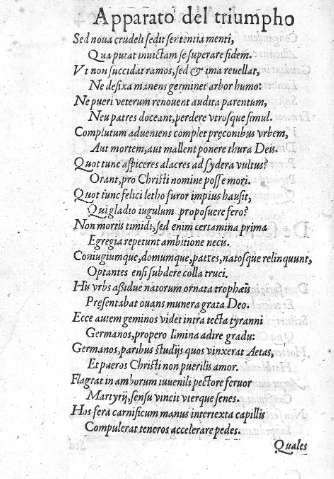 Apparato del triumpho
Sed noua crudeli sedit sententia menti,
Qua putat inuictam se superare fidem.
Vt non succidat ramos, sed & ima reuellat,
Ne defixa manens germinet arbor humo:
Ne pueri veterum renouent audita parentum,
Neu patres doceant, perdere virosque simul.
Complutum adueniens complet præconibus vrbem,
Aut mortem, aut mallent ponere thura Deis.
Quot tunc aspiceres alacres ad sydera vultus?
Orant, pro Christi nomine posse mori.
Quot tunc felici letho furor impius hausit,
Qui gladio iugulum proposuere fero?
Non mortis timidi, sed enim certamina prima
Egregia repetunt ambitione necis.
Coniugiumque, domumque, patres, natosque relinquunt,
Optantes ensi subdere colla truci.
His vrbs assidue natorum ornata trophæis
Præsentabat ouans munera grata Deo.
Ecce autem geminos videt intra tecta tyranni
Germanos, propero limina adire gradu:
Germanos, paribus studijs quos vinxerat Aetas,
Et pueros Christi non puerilis amor.
Flagrat in amborum iuuenili pectore feruor
Martyrij, sensu vincit vterque senes.
Hos fera carnificum manus intertexta capillis
Compulerat teneros accelerare pedes.
Quales